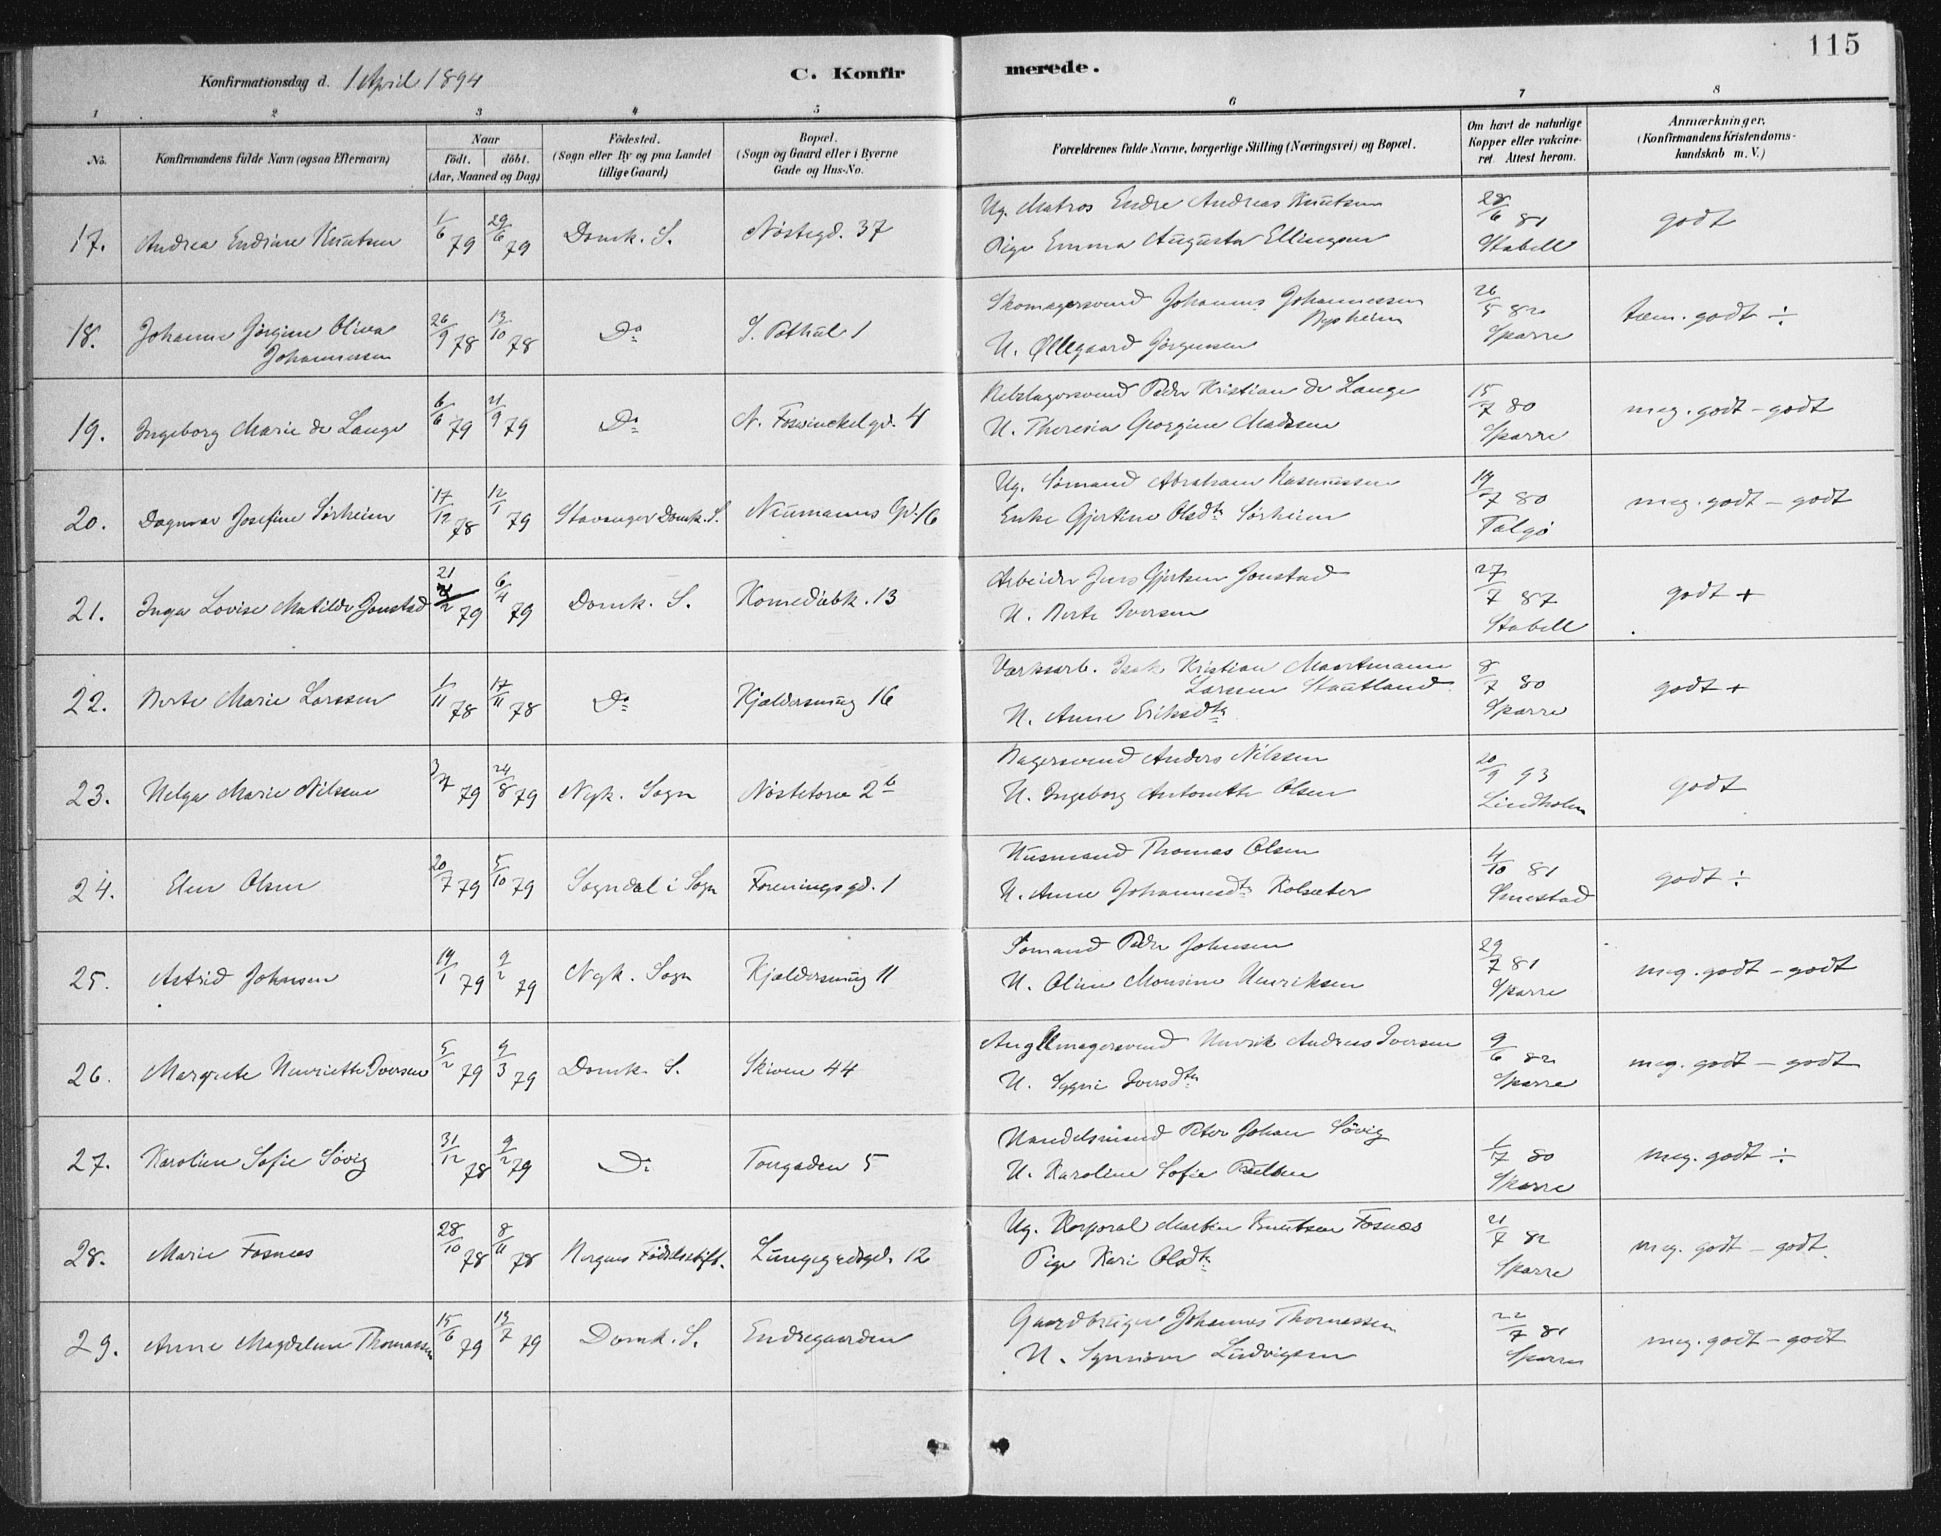 115
Konfirmationsdag d. 1 April 1894 C. Konfirmerede.
1 2 3 4 5 6 7 8
No. Konfirmandens fulde Navn (ogsaa Efternavn) Naar födt. döbt. (Aar, Maaned og Dag) Födested. (Sogn eller By og paa Landet tillige Gaard) Bopæl. (Sogn og Gaard eller i Byerne Gade og Hus-No. Forældrenes fulde Navne, borgerlige Stilling (Næringsvei) og Bopæl. Om havt de naturlige Kopper eller vakcineret. Attest herom. Anmærkninger. (Konfirmandens Kristendomskundskab m. V.)
17. Andrea Endrine Knutsen 1/6 79 29/6 79 Domk. S. Nöstegd. 37 Ug. Matros Endre Andreas Knutsen 28/6 81 godt
Pige Emma Augusta Ellingsen Stabell
18. Johanne Jörgine Oliva 26/9 78 13/10 78 Do S. Pethul 1 Skomagersvend Johannes Johannessen 26/5 82 tem. godt ÷
Johannessen Sparre
U. Øllegaard Jörgensen
19. Ingeborg Marie de Lange 6/6 79 21/9 79 Do N. Fosswinckelgd. 4 Rebslagersvend Peder Kristian de Lange 15/7 80 meg. godt - godt
U. Theresia Georgine Madsen Sparre
20. Dagmar Josefine Sörheim 17/12 78 12/1 79 Stavanger Domk. S. Neumanns Gd. 16 Ug. Sömand Abraham Rasmussen 19/7 80 meg. godt - godt
Enke Gjertine Olsdtr Sörheim Talgö
21. Inga Lovise Matilde Jonstad 21/2 79 6/4 79 Domk. S. Komediebk. 13 Arbeider Jens Gjertsen Jonstad 27/7 87 godt +
H. Berte Iversen Stabell
22. Berte Marie Larssen 1/11 78 17/11 78 Do Kjeldersmug 16 Værksarb. Isak Kristian Maartmann 8/7 80 godt +
Larssen Stautland Sparre
H. Anne Eriksdtr
23. Helga Marie Nilssen 3/7 79 24/8 79 Nyk. Sogn Nöstetorv 2b Bagersvend Anders Nilssen 20/9 93 godt
H. Ingeborg Antonette Olsen Lindholm
24. Elen Olsen 20/7 79 5/10 79 Sogndal i Sogn Foreningsgd. 1 Husmand Thomas Olsen 4/10 81 godt ÷
H. Anne Johannesdtr Kolseter
25. Astrid Johnsen 19/1 79 9/2 79 Nyk. Sogn Kjeldersmug 11 Sömand Peder Johnsen 29/7 81 meg. godt - godt
H. Oline Monsine Henriksen Sparre
26. Margrete Henriette Iversen 5/2 79 9/3 79 Domk. S. Skiven 44 Henrik Andreas Iversen 9/6 82 meg. godt - godt
H. Iversdtr Sparre
27. Karoline Sofie Sövig 31/12 78 9/2 79 Do Torgaden 5 Handelsmand Peter Johan Sövig 1/7 80 meg. godt ÷
H. Karoline Sofie Sparre
28. Marie Fosnæs 28/10 78 8/11 78 Bergens Födselsstift. Lungegaardsgd. 12 Ug. Korporal Martin Knutsen Fosnæs 21/7 82 meg. godt - godt.
Pige Kari Olsdtr Sparre
29. Anne Magdalene Thomassen 15/6 79 13/7 79 Domk. S. Endregaarden Gaardbruger Johannes Thomassen 22/7 81 meg. godt - godt
H. Synnöve Ludvigsen Sparre